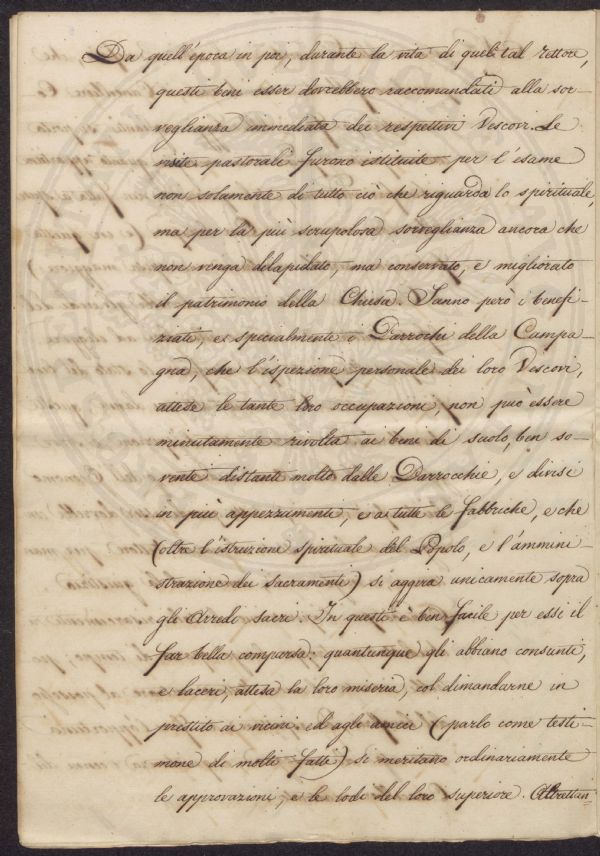 Da quell'época in poi, durante la vita di quel tal rettore,
questi beni esser dovrebbero raccomandati alla sor-
veglianza immediata dei respettivi Vescovi. Le
visite pastorali furono istituite per l'esame
non solamente di tutto ciò che riguarda lo spirituale,
ma per la più scrupolosa sorveglianza ancora che
non venga delapidato, ma conservato, e migliorato
il patrimonio della Chiesa. Sanno però i benefi-
ziati, e specialmente i Parrochi della Campa-
gna, che l'ispezione personale dei loro Vescovi,
attese le tante loro occupazioni, non può essere
minutamente rivolta ai beni di suolo, ben so-
vente distanti molto dalle Parrocchie, e divisi
in più appezzamenti, e a tutte le fabbriche, e che
(oltre l'istruzione spirituale del Popolo, e l'ammini-
strazione dei Sacramenti) si aggira unicamente sopra
gli Arredi sacri. In questi è ben facile per essi il
far bella comparsa: quantunque gli abbiano consunti,
e laceri, attesa la loro miseria, col dimandarne in
prestito ai vicini ed agli amici (parlo come testi-
mone di molti fatti) si meritano ordinariamente
le approvazioni, e le lodi del loro superiore. Altrettan-